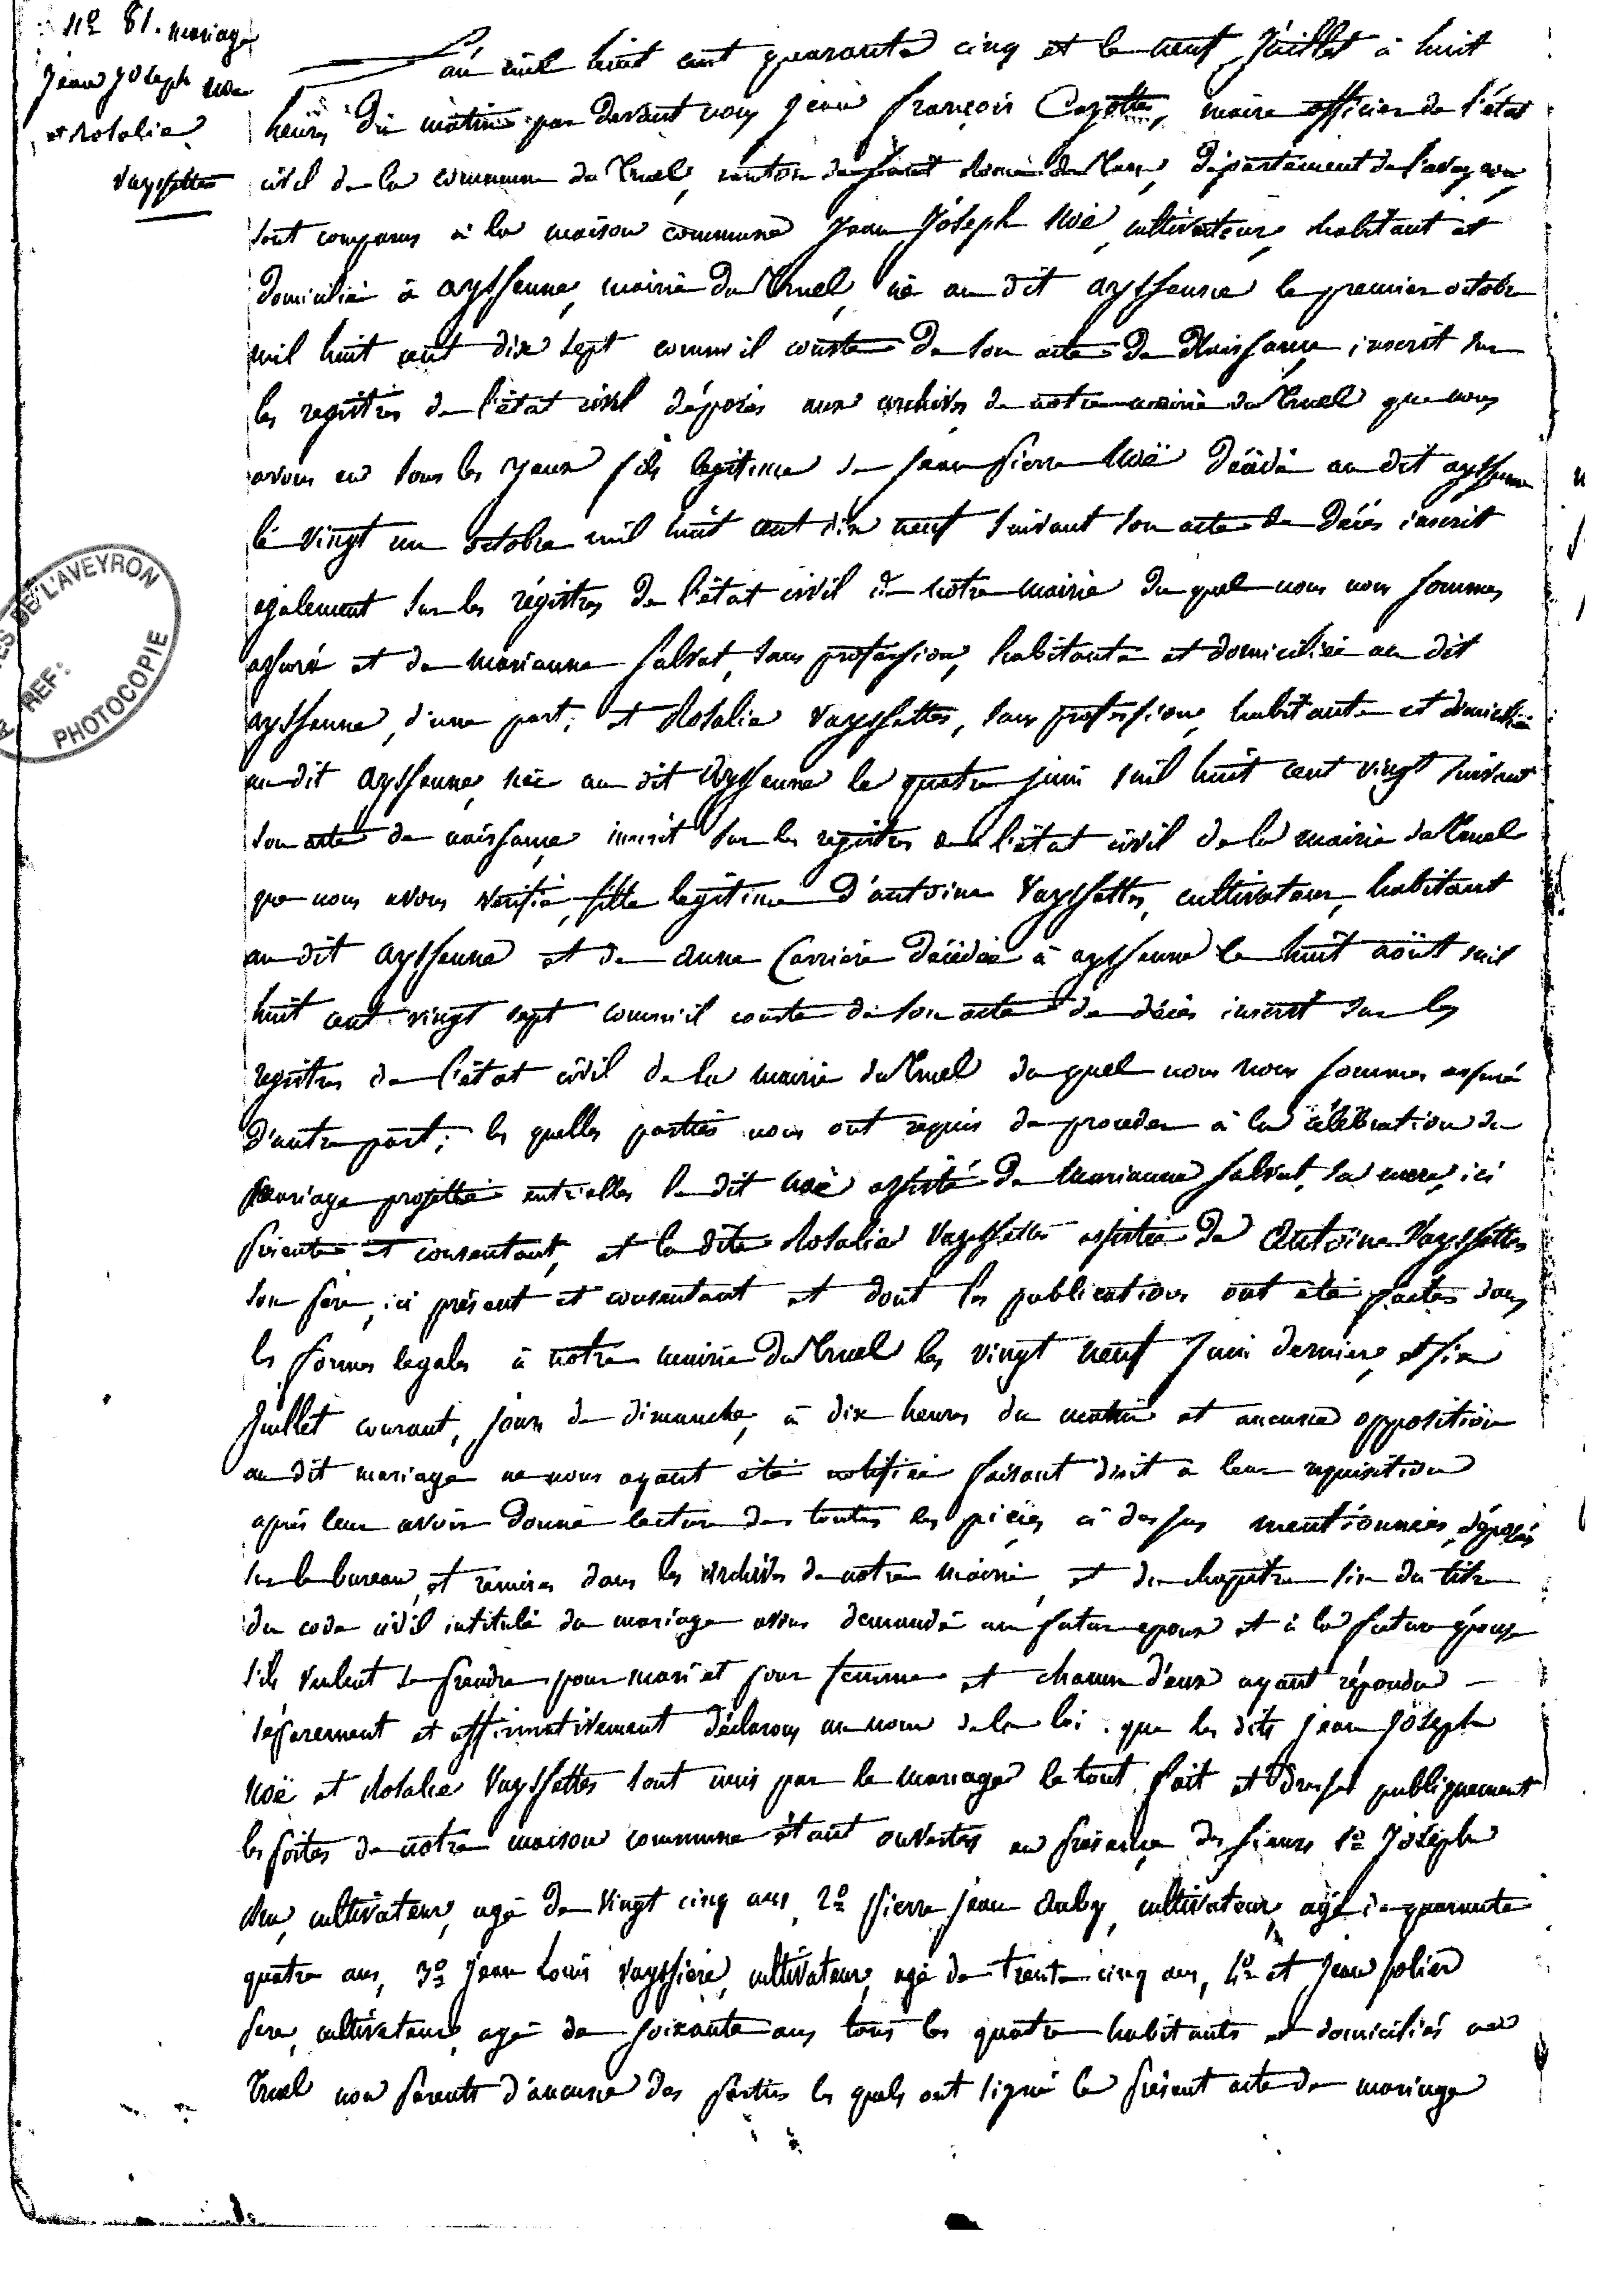 N° 81. mariage
Jean Joseph Noë
et Rosalie
Vayssettes
L'an mil huit cent quarante cinq et le neuf Juillet à huit
heures du matin par devant nous jean françois Cazottes, maire officier de l'état
civil de la commune du Truel, canton de saint Rome de Tarn, département de l'aveyron
sont comparus à la maison commune Jean Joseph Noë, cultivateur, habitant et
domicilié à ayssenne, mairie du Truel, né au dit ayssenne le premier octobre
mil huit cent dix sept comm'il conste de son acte de Naissance, inscrit sur
les registres de l'état civil déposés aux archives de notre mairie du Truel que nous
avons eu sous les yeux fils legitime de jean pierre Noë décédé au dit ayssenne
le vingt un octobre mil huit cent dix neuf suivant son acte de décés inscrit
également sur les régistres de l'état civil de notre mairie du quel nous nous sommes
assuré et de marianne salvat, sans profession, habitante et domiciliée au dit
ayssenne, d'une part; et Rosalie Vayssettes, sans profession, habitante et domiciliée
au dit ayssenne, née au dit ayssenne le quatre juin mil huit cent vingt suivant
son acte de naissance inscrit sur les registres de l'état civil de la mairie du Truel
que nous avons verifié, fille legitime d'antoine Vayssettes, cultivateur, habitant
au dit ayssenne et de anne Carriere décédée à ayssenne le huit août mil
huit cent vingt sept comm'il conste de son acte de décés inscrit sur les
registres de l'état civil de la mairie du Truel du quel nous nous sommes assuré
d'autre part; les quelles parties nous ont requis de proceder à la célébration du
mariage projetté entr'elles le dit Noë assisté de marianne salvat, sa mere, ici
présente et consentant, et la dite Rosalie Vayssettes assistée de Antoine Vayssettes
son pere, ici présent et consentant et dont les publications ont été faites dans
les formes legales à notre mairie du Truel les vingt neuf juin dernier, et six
Juillet courant, jours de dimanche, à dix heures du matin et aucune opposition
au dit mariage ne nous ayant été notifiée faisant droit a leur requisition
aprés leur avoir donné lecture des toutes les piéces ci dessus mentionnées, déposés
sur le bureau, et remises dans les archives de notre mairie, et du chapitre six du titre
du code civil intitulé du mariage avons demandé au futur epoux et à la future épouse
s'ils veulent se prendre pour mari et pour femme et chacun d'eux ayant répondu
séparement et affirmativement déclarons au nom de la loi que les dits jean joseph
Noë et Rosalie Vayssettes sont unis par le mariage le tout fait et dressé publiquement
les portes de notre maison commune étant ouvertes en présence des sieurs 1° Joseph
cultivateur, agé de vingt cinq ans, 2° pierre jean auby, cultivateur, agé de quarante
quatre ans, 3° jean Louis Vayssiere, cultivateur, agé de trente cinq ans, 4° et jean solier
pere, cultivateur, agé de soixante ans tous les quatre habitants et domiciliés au
Truel non parents d'aucune des parties les quels ont signé le présent acte de mariage
DE L'AVEYRON
REF:
PHOTOCOPIE